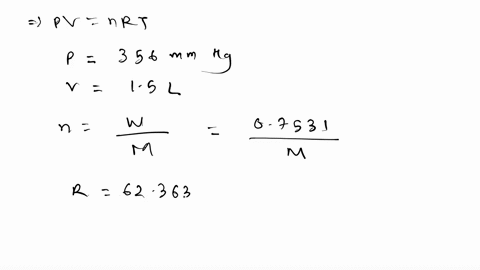 =) PV = nRT
P = 356 mm Hg
V = 1.5 L
n = W / M = 0.7531 / M
R = 62.363